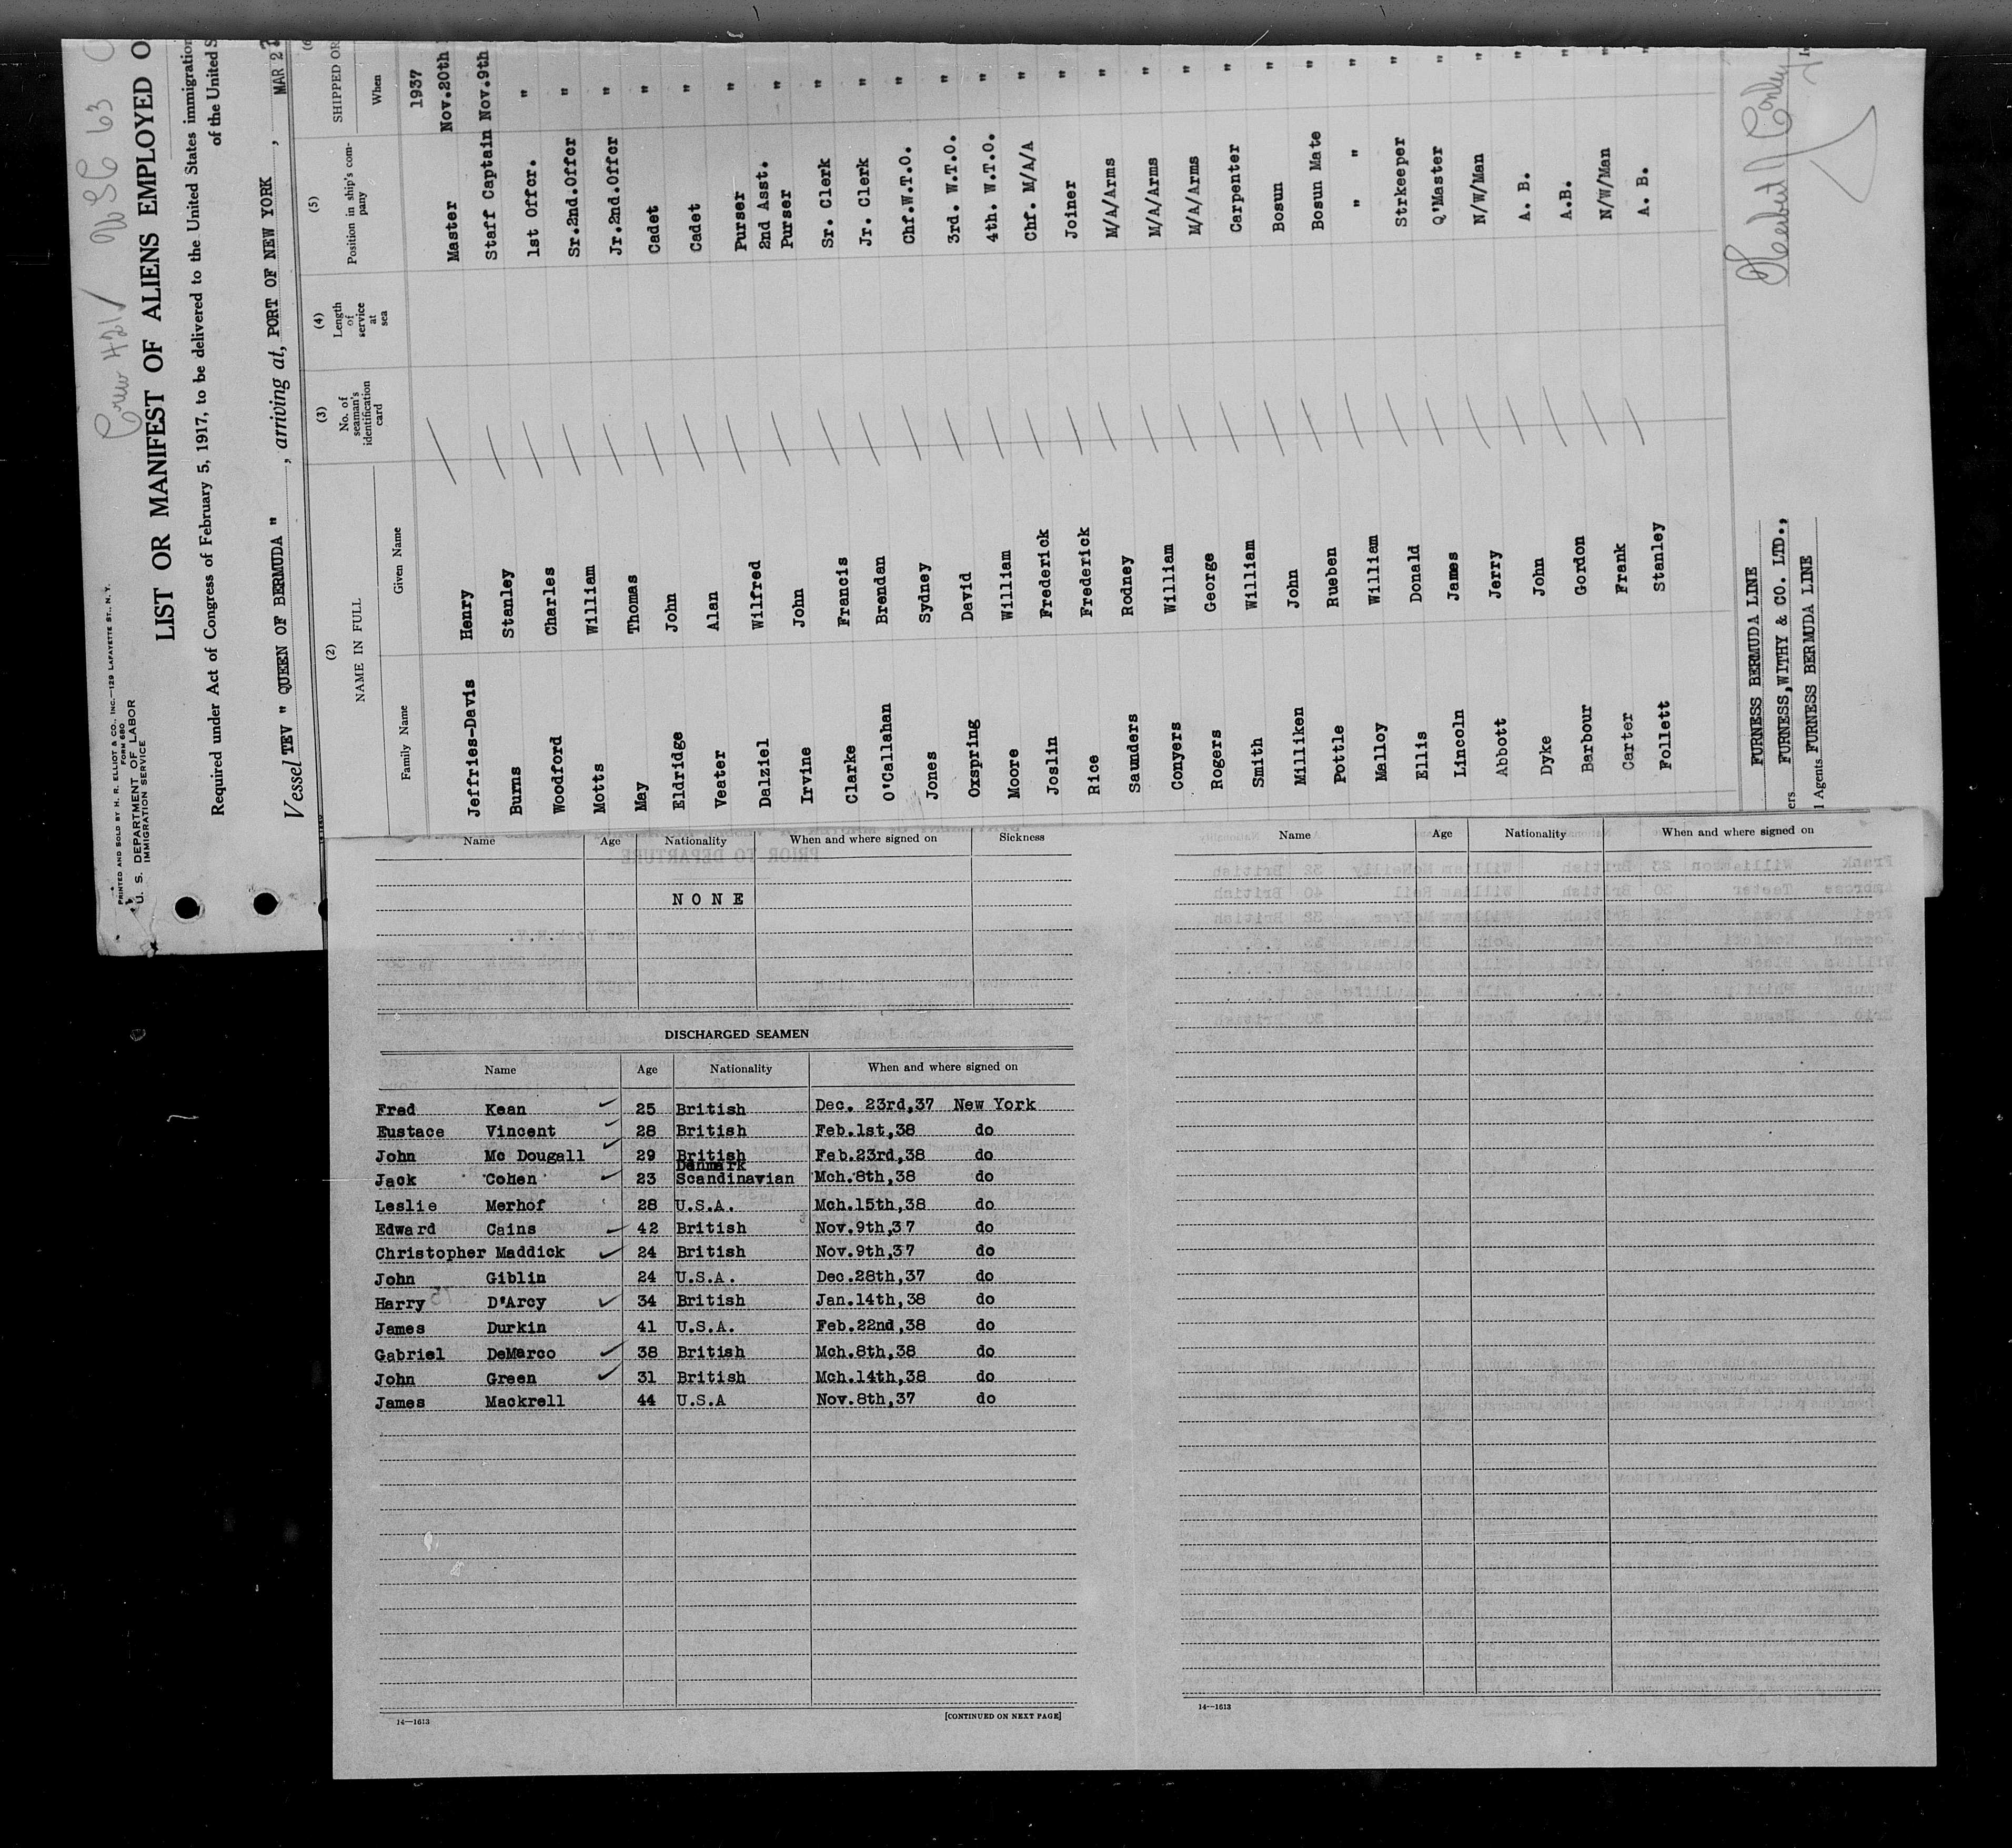 PRINTED AND SOLD BY H. R. ELLIOT & CO., INC.—129 LAFAYETTE ST., N. Y.
FORM 680
U. S. DEPARTMENT OF LABOR
IMMIGRATION SERVICE
Crew 421
LIST OR MANIFEST OF ALIENS EMPLOYED O
Required under Act of Congress of February 5, 1917, to be delivered to the United States immigration
of the United S
Vessel TEV " QUEEN OF BERMUDA " , arriving at, PORT OF NEW YORK , MAR 2
(2) (3) (4) (5) (6
NAME IN FULL No. of seaman's identification card Length of service at sea Position in ship's company SHIPPED OR
Family Name Given Name When
1937
Jeffries-Davis Henry Master Nov.20th
Burns Stanley Staff Captain Nov.9th
Woodford Charles 1st Offcr. "
Motts William Sr.2nd.Offcr "
May Thomas Jr.2nd.Offcr "
Eldridge John Cadet "
Veater Alan Cadet "
Dalziel Wilfred Purser "
Irvine John 2nd Asst. Purser "
Clarke Francis Sr. Clerk "
O'Callahan Brendan Jr. Clerk "
Jones Sydney Chf.W.T.O. "
Oxspring David 3rd. W.T.O. "
Moore William 4th. W.T.O. "
Joslin Frederick Chf. M/A/A "
Rice Frederick Joiner "
Saunders Rodney M/A/Arms "
Conyers William M/A/Arms "
Rogers George M/A/Arms "
Smith William Carpenter "
Milliken John Bosun "
Pottle Rueben Bosun Mate "
Malloy William " " "
Ellis Donald Strkeeper "
Lincoln James Q'Master "
Abbott Jerry N/W/Man "
Dyke John A. B. "
Barbour Gordon A.B. "
Carter Frank N/W/Man "
Follett Stanley A. B. "
FURNESS BERMUDA LINE
ers FURNESS,WITHY & CO. LTD.,
l Agents FURNESS BERMUDA LINE
Name Age Nationality When and where signed on Sickness
NONE
DISCHARGED SEAMEN
Name Age Nationality When and where signed on
Fred Kean 25 British Dec. 23rd,37 New York
Eustace Vincent 28 British Feb.1st,38 do
John Mc Dougall 29 British Feb.23rd,38 do
Denmark
Jack Cohen 23 Scandinavian Mch.8th,38 do
Leslie Merhof 28 U.S.A. Mch.15th,38 do
Edward Cains 42 British Nov.9th,37 do
Christopher Maddick 24 British Nov.9th,37 do
John Giblin 24 U.S.A. Dec.28th,37 do
Harry D'Arcy 34 British Jan.14th,38 do
James Durkin 41 U.S.A. Feb.22nd,38 do
Gabriel DeMarco 38 British Mch.8th,38 do
John Green 31 British Mch.14th,38 do
James Mackrell 44 U.S.A Nov.8th,37 do
14—1613 [CONTINUED ON NEXT PAGE]
Name Age Nationality When and where signed on
14—1613